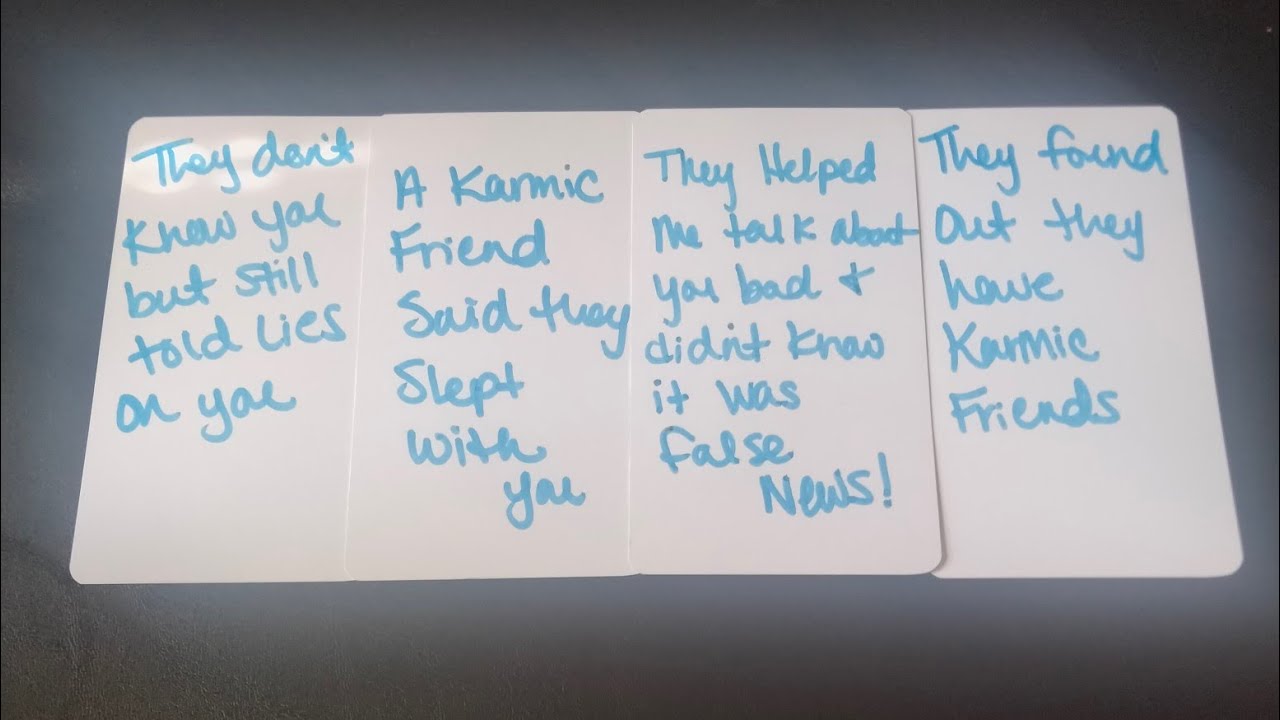 They don't
Know you
but still
told Lies
on you
A Karmic
Friend
Said they
Slept
With
you
They Helped
Me talk about
you bad &
didn't know
it was
false
News!
They found
Out they
have
Karmic
Friends